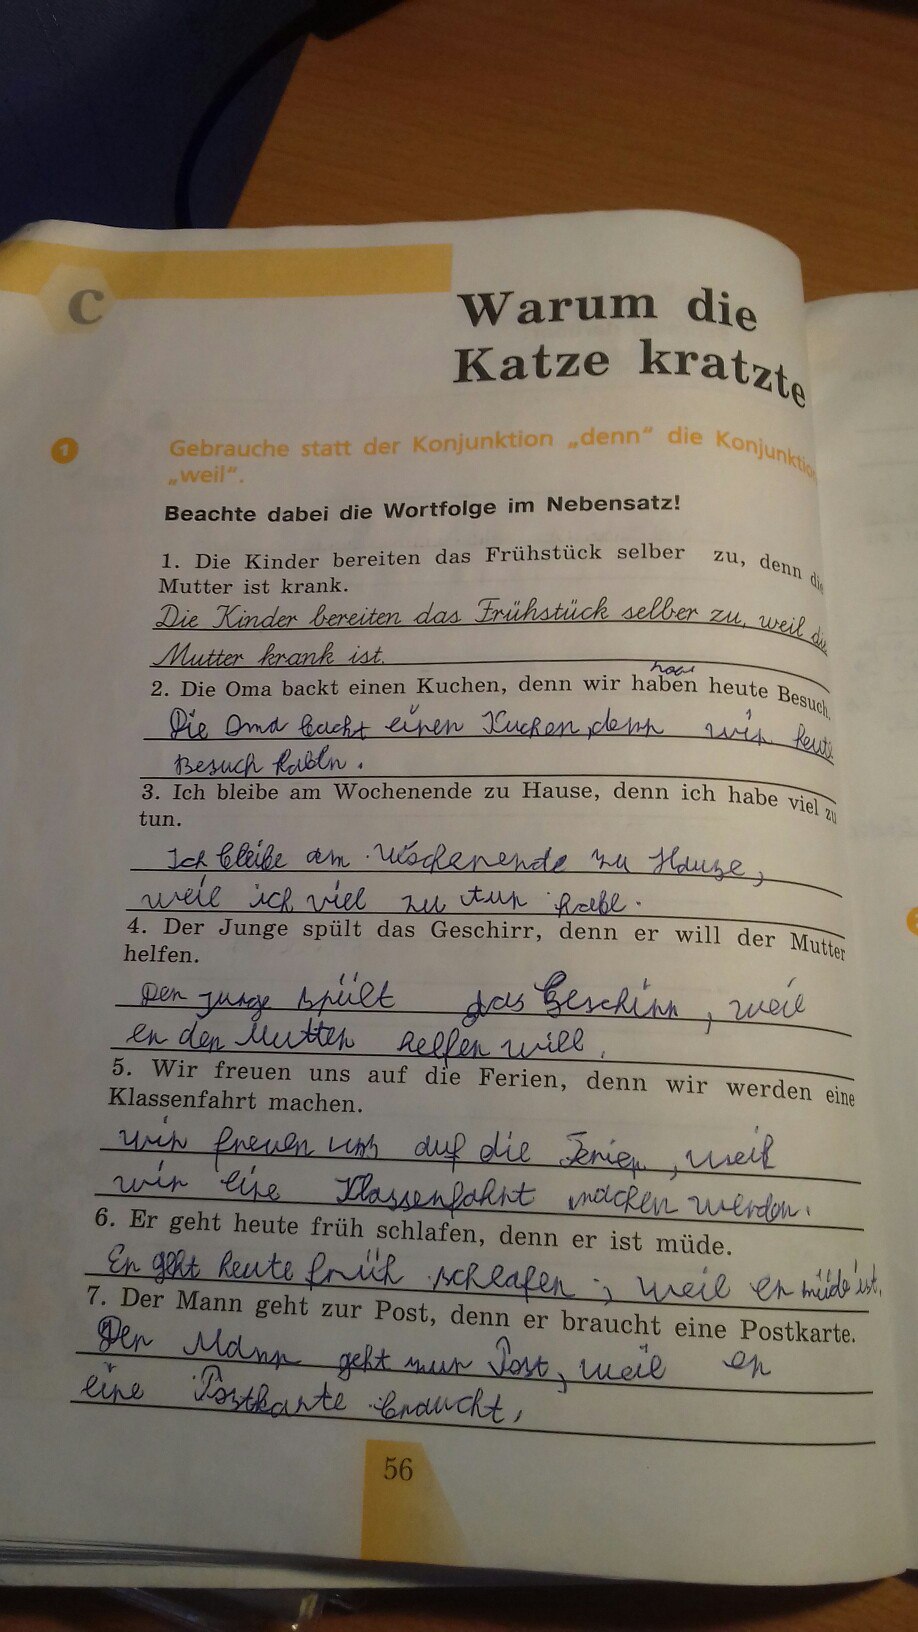 C
Warum die
Katze kratzte
1
Gebrauche statt der Konjunktion „denn“ die Konjunktio
„weil“.
Beachte dabei die Wortfolge im Nebensatz!
1. Die Kinder bereiten das Frühstück selber zu, denn die
Mutter ist krank.
Die Kinder bereiten das Frühstück selber zu, weil die
Mutter krank ist.
2. Die Oma backt einen Kuchen, denn wir haben heute Besuch.
Die Oma backt einen Kuchen, denn wir heute
Besuch haben.
3. Ich bleibe am Wochenende zu Hause, denn ich habe viel zu
tun.
Ich bleibe am Wochenende zu Hause,
weil ich viel zu tun habe.
4. Der Junge spült das Geschirr, denn er will der Mutter
helfen.
Der Junge spült das Geschirr, weil
er der Mutter helfen will.
5. Wir freuen uns auf die Ferien, denn wir werden eine
Klassenfahrt machen.
wir freuen uns auf die Ferien, weil
wir eine Klassenfahrt machen werden.
6. Er geht heute früh schlafen, denn er ist müde.
Er geht heute früh schlafen, weil er müde ist.
7. Der Mann geht zur Post, denn er braucht eine Postkarte.
Der Mann geht zur Post, weil er
eine Postkarte braucht,
56